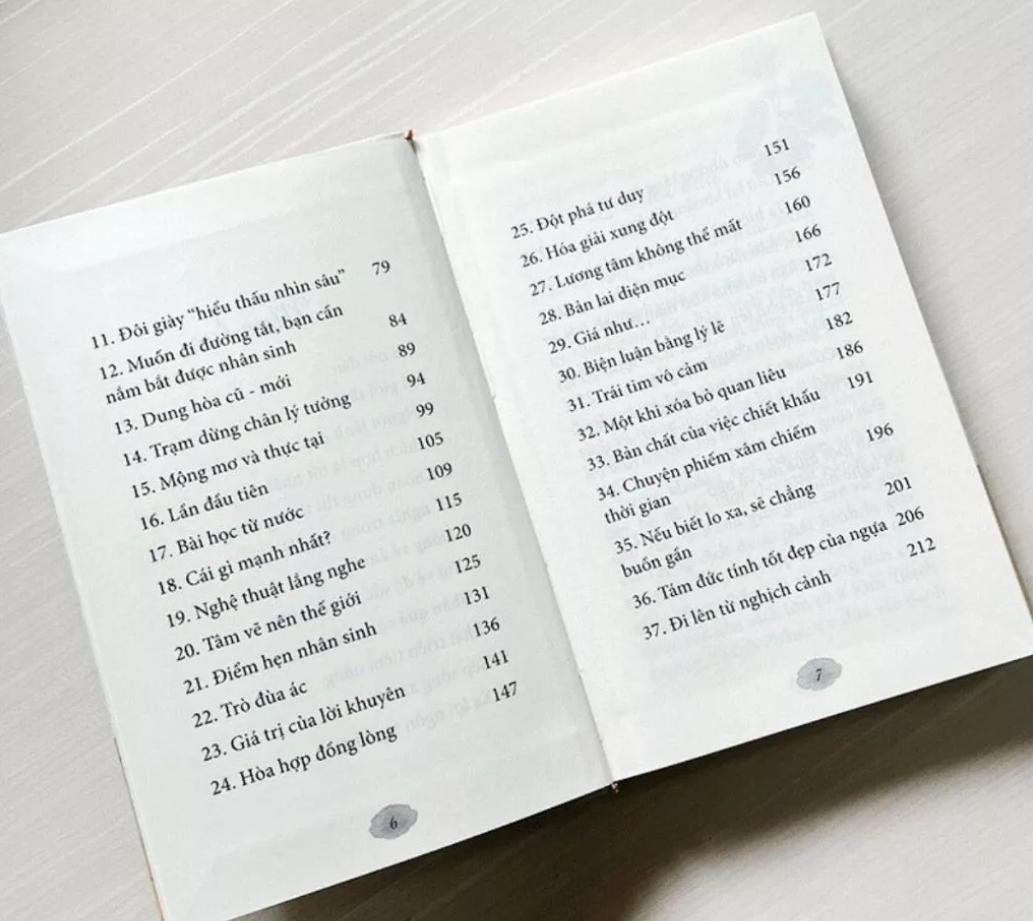 11. Đôi giày “hiểu thấu nhìn sâu” 79
12. Muốn đi đường tắt, bạn cần
nắm bắt được nhân sinh 84
13. Dung hòa cũ - mới 89
14. Trạm dừng chân lý tưởng 94
15. Mộng mơ và thực tại 99
16. Lần đầu tiên 105
17. Bài học từ nước 109
18. Cái gì mạnh nhất? 115
19. Nghệ thuật lắng nghe 120
20. Tâm vẽ nên thế giới 125
21. Điểm hẹn nhân sinh 131
22. Trò đùa ác 136
23. Giá trị của lời khuyên 141
24. Hòa hợp đồng lòng 147
6
25. Đột phá tư duy 151
26. Hóa giải xung đột 156
27. Lương tâm không thể mất 160
28. Bản lai diện mục 166
29. Giá như… 172
30. Biện luận bằng lý lẽ 177
31. Trái tim vô cảm 182
32. Một khi xóa bỏ quan liêu 186
33. Bản chất của việc chiết khấu 191
34. Chuyện phiếm xâm chiếm
thời gian 196
35. Nếu biết lo xa, sẽ chẳng
buồn gần 201
36. Tám đức tính tốt đẹp của ngựa 206
37. Đi lên từ nghịch cảnh 212
7